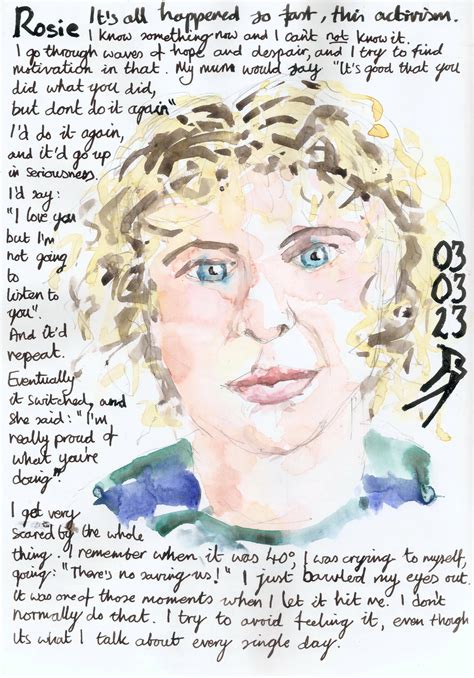 Rosie It's all happened so fast, this activism.
I know something now and I can't not know it.
I go through waves of hope and despair, and I try to find
motivation in that. My mum would say "It's good that you
did what you did,
but dont do it again"
I'd do it again,
and it'd go up
in seriousness.
I'd say:
"I love you
but I'm
not going
to
listen to
you".
And it'd
repeat.
Eventually
it switched, and
she said: "I'm
really proud of
what you're
doing".
I get very
scared by the whole
thing. I remember when it was 40°, I was crying to myself,
going: "There's no saving us!" I just bawled my eyes out.
It was one of those moments when I let it hit me. I don't
normally do that. I try to avoid feeling it, even though
its what I talk about every single day.
03
03
23